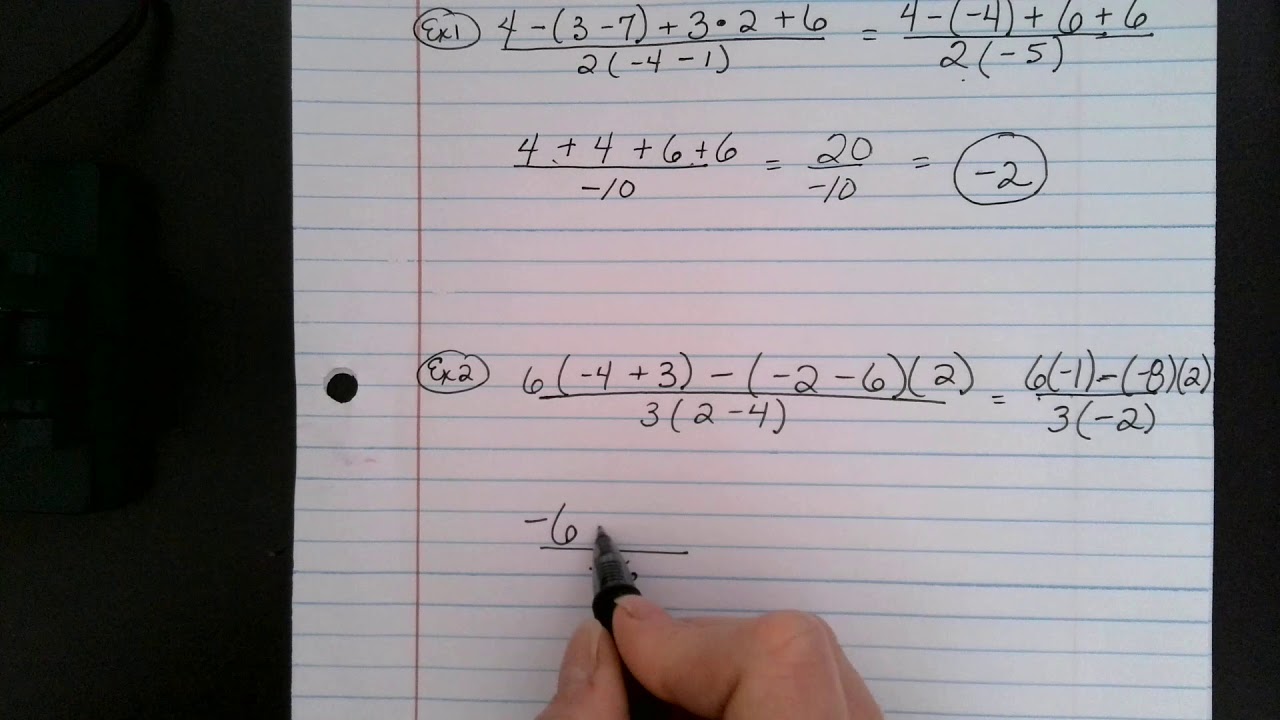 Ex1 4 - (3 - 7) + 3 • 2 + 6 = 4 - (-4) + 6 + 6
2(-4 - 1) 2(-5)
4 + 4 + 6 + 6 = 20 = -2
-10 -10
Ex2 6(-4 + 3) - (-2 - 6)(2) = 6(-1) - (-8)(2)
3(2 - 4) 3(-2)
-6